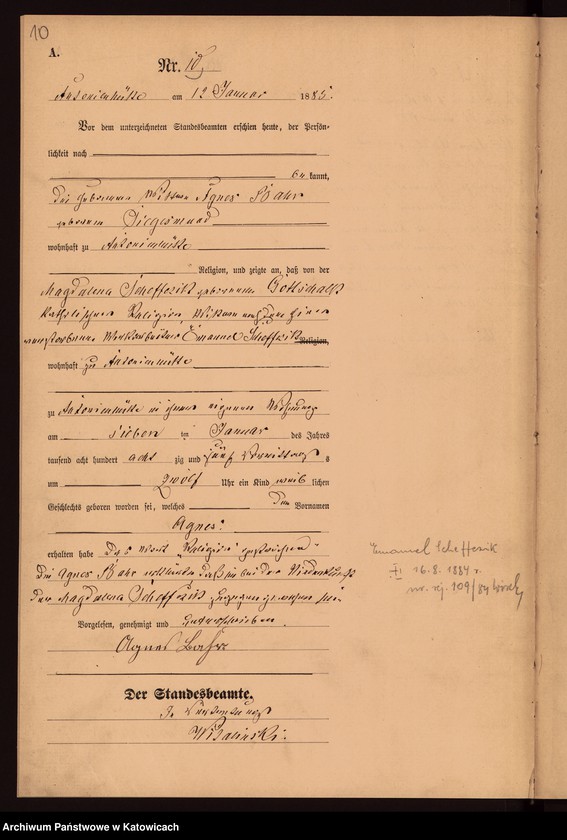 10
A.
Nr. 10
Antonienhütte am 12 Januar 1885.
Vor dem unterzeichneten Standesbeamten erschien heute, der Persön-
lichkeit nach
bekannt,
die Wittwe Agnes Bahr
geborene Siegesmund
wohnhaft zu Antonienhütte
Religion, und zeigte an, daß von der
Magdalena Scheffczik geborene Gottschalk
katholischer Religion, Wittwe nach dem hier
verstorbenen Emanuel Scheffczik Religion,
wohnhaft zu Antonienhütte
zu Antonienhütte in ihrer eigenen Wohnung
am sieben ten Januar des Jahres
tausend acht hundert acht zig und fünf Vormittags
um zwölf Uhr ein Kind weib lichen
Geschlechts geboren worden sei, welches den Vornamen
Agnes
erhalten habe Das Wort „Religion" gestrichen
Die Agnes Bahr erklärte daß sie bei der Niederkunft
der Magdalena Scheffczik zugegen gewesen sei.
Vorgelesen, genehmigt und unterschrieben
Agnes Bahr
Der Standesbeamte.
In Vertretung
Emanuel Scheffczik
16.8.1884 r.
nr. rej. 109/84
Archiwum Państwowe w Katowicach